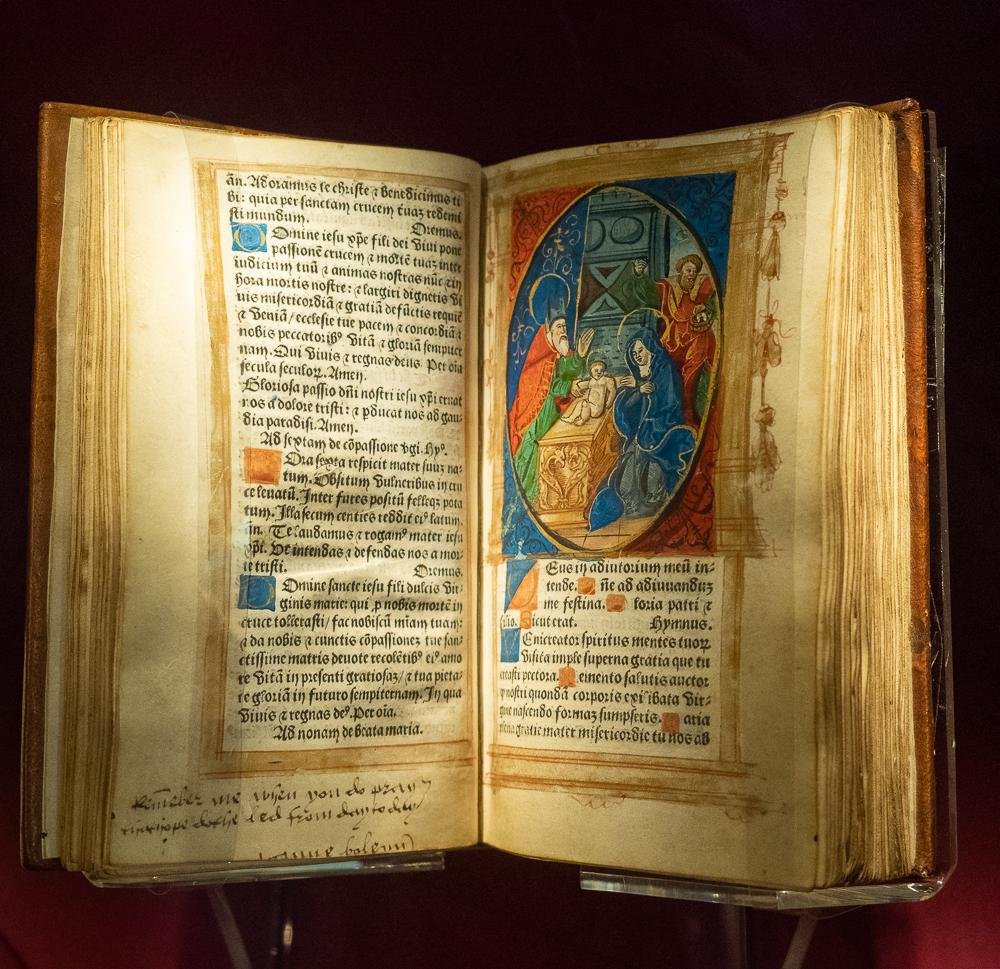 ãn. Adoramus te christe ⁊ benedicimus ti
bi: quia per sanctam crucem tuaꝫ redemi
sti mundum. Oremus.
Omine iesu xp̃e fili dei viui pone
passionẽ crucem ⁊ mortẽ tuaꝫ inter
iudicium tuũ ⁊ animas nostras nũc ⁊ in
hora mortis nostre: ⁊ largiri digneris vi
uis misericordiã ⁊ gratiã defũctis requiẽ
⁊ veniã/ ecclesie tue pacem ⁊ concordiã ⁊
nobis peccatoribꝰ vitã ⁊ gloriã sempiter
nam. Qui viuis ⁊ regnas deus. Per oĩa
secula seculoꝝ. Amen.
Gloriosa passio dñi nostri iesu xp̃i eruat
nos a dolore tristi: ⁊ ꝑducat nos ad gau
dia paradisi. Amen.
Ad sextam de cõpassione vgi. Hyꝰ.
Ora sexta respicit mater suuꝫ na
tum. Obsitum vulneribus in cru
ce leuatũ. Inter fures positũ felleqꝫ pota
tum. Illa secum centies reddit eiꝰ latum.
ãn. Te laudamus ⁊ rogamꝰ mater iesu
xp̃i. Vt intendas ⁊ defendas nos a mor
te tristi. Oremus.
Omine sancte iesu fili dulcis vir
ginis marie: qui ꝓ nobis mortẽ in
cruce tollerasti/ fac nobiscũ miam tuam:
⁊ da nobis ⁊ cunctis cõpassioneꝫ tue san
ctissime matris deuote recolẽtibꝰ eiꝰ amo
re vitã in presenti gratiosaꝫ/ ⁊ tua pieta
te gloriã in futuro sempiternam. In qua
viuis ⁊ regnas deꝰ. Per oĩa.
Ad nonam de beata maria.
Remember me when you do pray
that hope dothe led from day to day
anne boleyn
Eus in adiutorium meũ in
tende. ñe ad adiuuanduꝫ
me festina. loria patri ⁊
filio. Sicut erat. Hymnus.
Eni creator spiritus mentes tuoꝝ
visita imple superna gratia que tu
creasti pectora. emento salutis auctor
ꝙ nostri quondã corporis ex ilibata vir-
gine nascendo formaꝫ sumpseris. aria
plena gratie mater misericordie tu nos ab